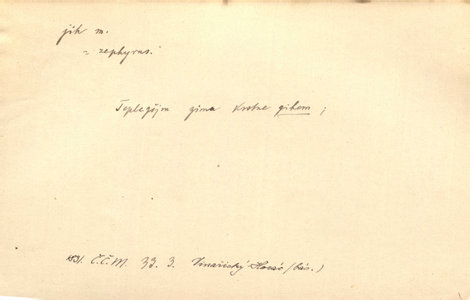 jih m.
= zephyrus.
Teplegšjm zima krotne gihem ;
1831. Č.Č.M. 33. 3. Vinařický Horác (bás.)